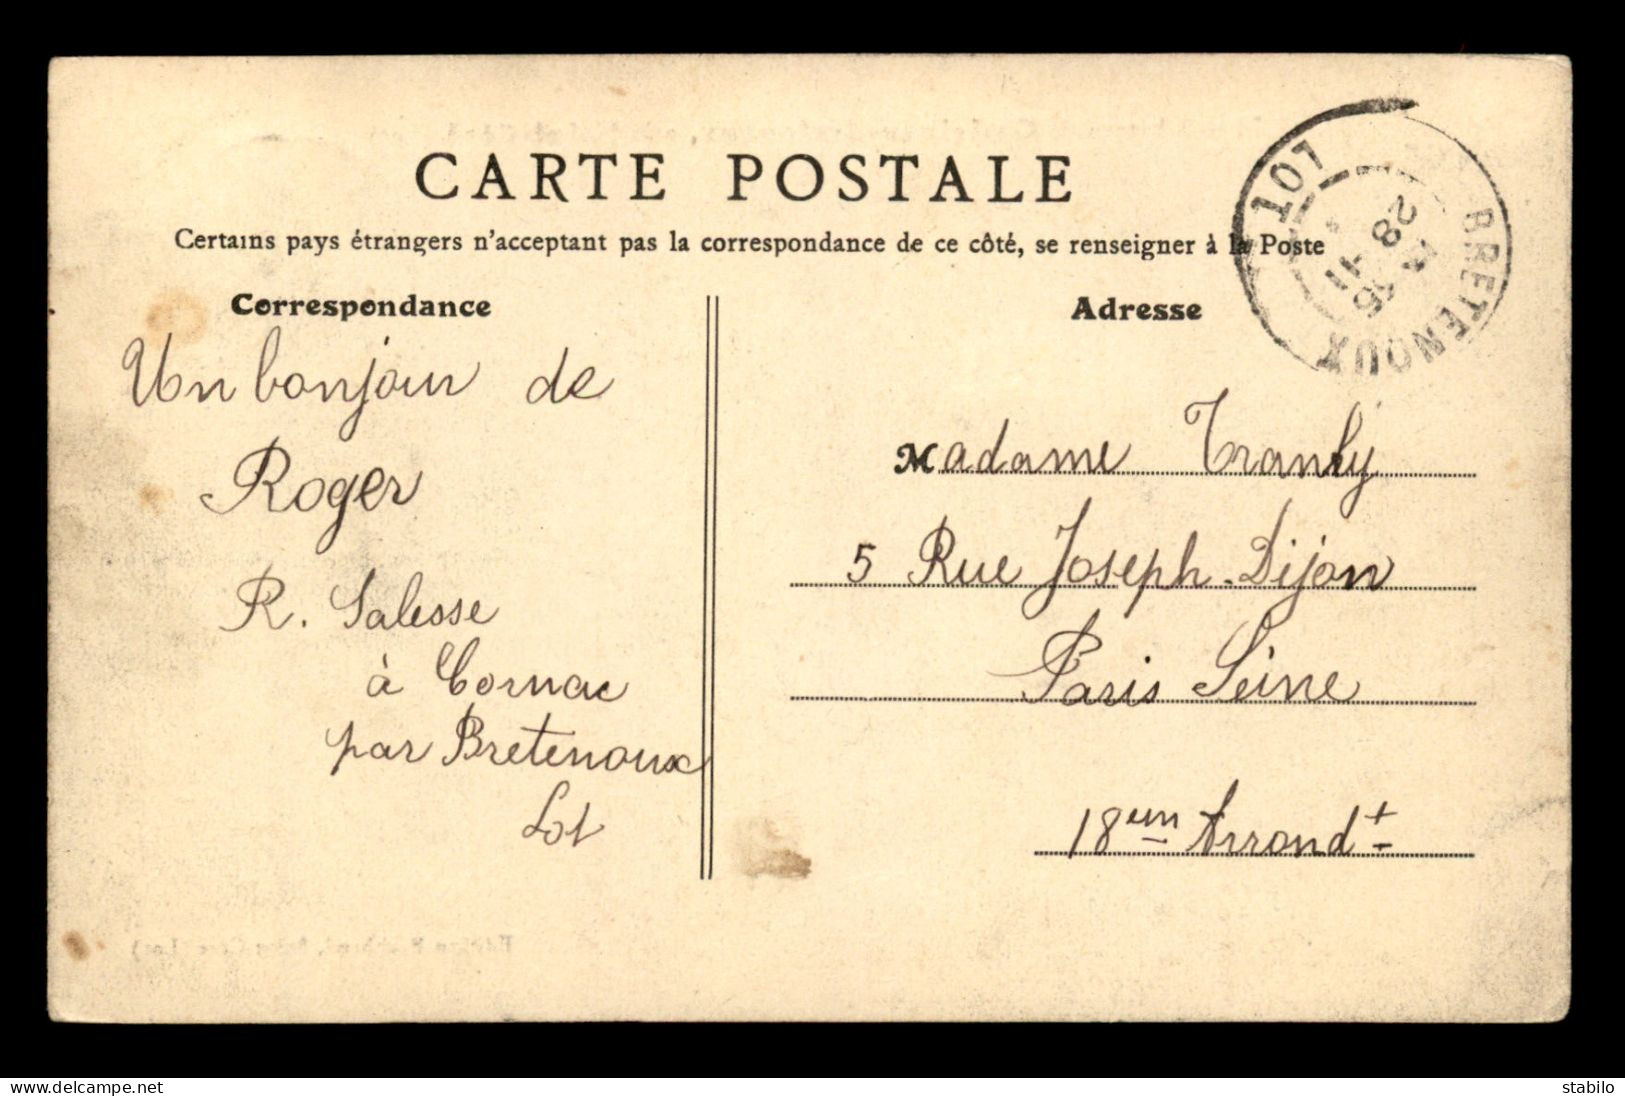 CARTE POSTALE
Certains pays étrangers n'acceptent pas la correspondance de ce côté, se renseigner à la Poste
Correspondance
Un bonjour de
Roger
R. Salesse
à Cornac
par Bretenoux
Lot
Adresse
Madame
5 Rue Joseph-Dijon
Paris Seine
18em Arrondt
BRETENOUX
LOT
28
www.delcampe.net
stabilo